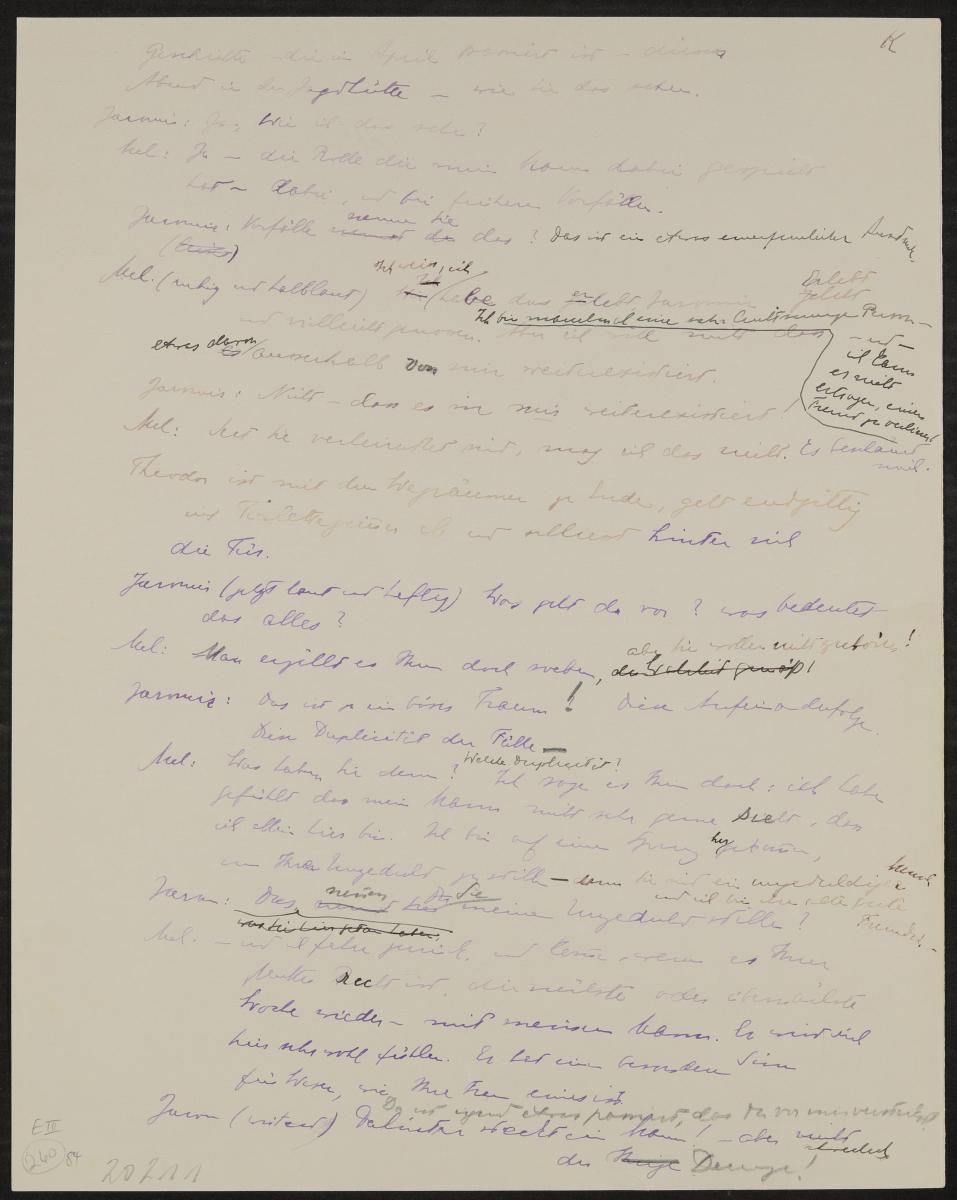 K
Geschichte – die im April passiert ist – diesen
Abend in der Jagdhütte – wie Sie das sehen.
Jaromir: Ja, wie ist das sehr?
Mel: Ja – die Rolle die mein Mann dabei gespielt
hat – dabei, und bei früheren Vorfällen.
nennen Sie
Jaromir: Vorfälle das? Das ist ein etwas Ausdruck.
Ich weiss, ich
Mel. (ruhig und halblaut) habe das erlebt, Jaromir
Erlebt
Ich bin manchmal eine sehr Person –
und vielleicht genossen. Aber ich will nicht dass
– und –
ich kann
es nicht
ertragen, einen
Freund zu verlieren!
etwas davon ausserhalb von mir weiterexistiert.
Jaromir: Nicht – dass es in mir weiterexistiert!
Mel: Seit Sie verheiratet sind, mag ich das nicht. Es
mich.
Theodor ist mit dem Wegräumen zu Ende, geht endgiltig
ins Toilettezimmer ab und schliesst hinter sich
die Tür.
Jaromir (jetzt laut und heftig) Was geht da vor? was bedeutet
das alles?
aber Sie wollen nicht zuhören!
Mel: Man erzählt es Ihnen doch soeben,
Jaromir: Das ist ja ein böser Traum! Diese Aufeinanderfolge.
Diese Duplicität der Fälle –
Welche Duplicität?
Mel: Was haben Sie denn? Ich sage es Ihnen doch: ich habe
gefühlt dass mein Mann nicht sehr gerne sieht, dass
ich allein hier bin. Ich bin auf einen Sprung hergekommen,
um Ihre Ungeduld zu stillen – denn Sie sind ein ungeduldiger Mensch
und ich bin Ihre alte gute
Freundin. –
nennen Sie
Jarom: Das meine Ungeduld stillen?
was Sie hier getan haben.
Mel. – und ich fahre zurück, und komme, wenn es Ihrer
Mutter Recht ist, die nächste oder übernächste
Woche wieder – mit meinem Mann. Er wird sich
hier sehr wohl fühlen. Er hat einen besonderen Sinn
für Wesen, wie Ihre Frau eines ist.
Da ist irgend etwas passiert, das Du mir
Jarom (wütend) Dahinter steckt ein Mann! – aber nicht
der Deinige!
E III
240
84
20211